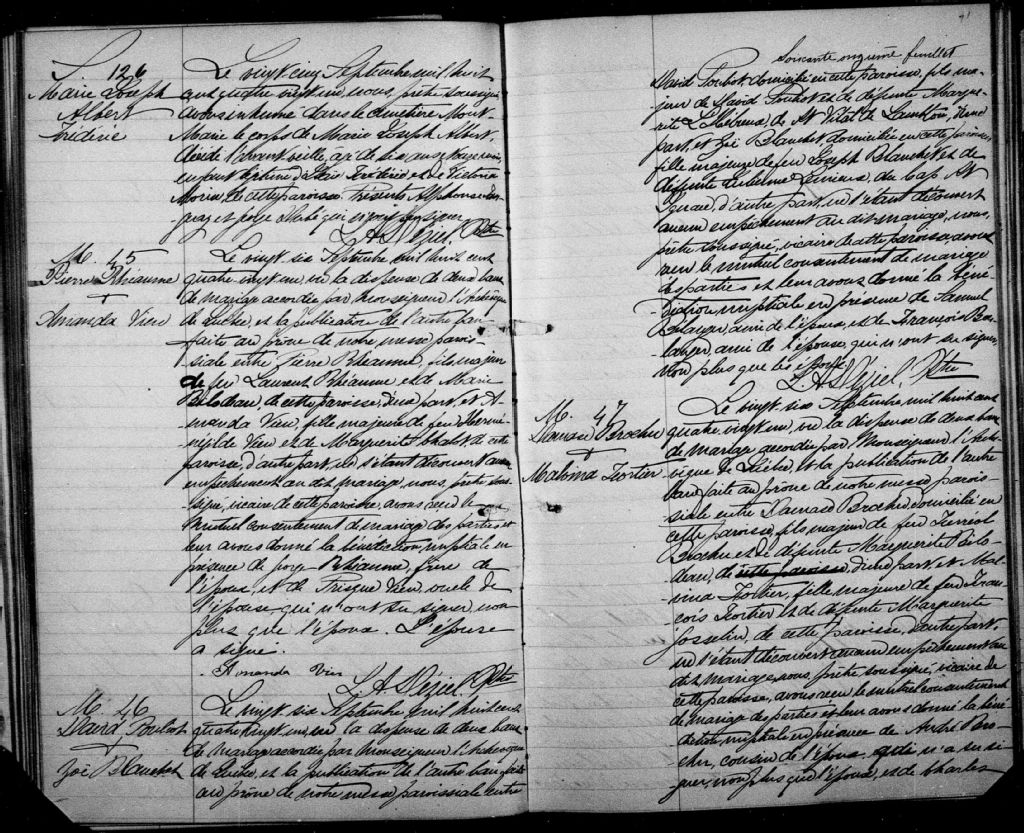 S. 126
Marie Joseph
Albert
Frédéric
Le vingt cinq Septembre mil huit
cent quatre vingt un, nous, prêtre soussigné
avons inhumé dans le cimetière Mont-
Marie le corps de Marie Joseph Albert,
décédé l'avant veille, âgé de six ans et
enfant légitime d' et de Victoria
Morin, de cette paroisse. Présents Alphonse
et qui n'ont pu signer
L. A. Déziel. Ptre
M. 45
Pierre Rhéaume
+
Amanda Vien
Le vingt six Septembre mil huit cent
quatre vingt un, vu la dispense de deux bans
de mariage accordée par Monseigneur l'Archevêque
de Québec, et la publication de l'autre ban
faite au prône de notre messe parois-
siale entre Pierre Rhéaume, fils majeur
de feu Laurent Rhéaume et de Marie
Bilodeau, de cette paroisse, d'une part, et A-
manda Vien, fille majeure de feu Hermé-
négilde Vien et de Marguerite Chabot de cette
paroisse, d'autre part, ne s'étant découvert aucun
empêchement au dit mariage, nous, prêtre sous-
signé, vicaire de cette paroisse, avons reçu le
mutuel consentement de mariage des parties et
leur avons donné la bénédiction nuptiale en
présence de Rhéaume, frère de
l'époux, et de Vien, oncle de
l'épouse qui n'ont su signer, non
plus que l'époux. L'épouse
a signé.
Amanda Vien
L. A. Déziel. Ptre
M. 46
David Pouliot
+
Zoé Blanchet
Le vingt six Septembre mil huit cent
quatre vingt un, vu la dispense de deux bans
de mariage accordée par Monseigneur l'Archevêque
de Québec, et la publication de l'autre ban faite
au prône de notre messe paroissiale entre
Soixante onzième feuillet
David Pouliot domicilié en cette paroisse, fils ma-
jeur de David Pouliot et de défunte Margue-
rite L'Hébreux, de St Vital de Lambton, d'une
part, et Zoé Blanchet, domiciliée en cette paroisse,
fille majeure de feu Joseph Blanchet et de
défunte Lemieux, du Cap St
Ignace, d'autre part, ne s'étant découvert
aucun empêchement au dit mariage, nous,
prêtre soussigné, vicaire de cette paroisse, avons
reçu le mutuel consentement de mariage
des parties et leur avons donné la béné-
diction nuptiale en présence de Samuel
Bélanger, ami de l'époux, et de François Bou-
langer, ami de l'épouse, qui n'ont su signer,
non plus que les époux.
L. A. Déziel. Ptre
M. 47
Damase Brochu
+
Malvina Fortier
Le vingt six Septembre mil huit cent
quatre vingt un, vu la dispense de deux bans
de mariage accordée par Monseigneur l'Arche-
vêque de Québec, et la publication de l'autre
ban faite au prône de notre messe parois-
siale entre Damase Brochu, domicilié en
cette paroisse, fils majeur de feu Ferréol
Brochu et de défunte Marguerite Bilo-
deau, de cette paroisse, d'une part, et Mal-
vina Fortier, fille majeure de feu Fran-
çois Fortier et de défunte Marguerite
Gosselin, de cette paroisse, d'autre part,
ne s'étant découvert aucun empêchement au
dit mariage, nous, prêtre soussigné, vicaire de
cette paroisse, avons reçu le mutuel consentement
de mariage des parties et leur avons donné la béné-
diction nuptiale en présence de André
cousin de l'époux qui n'a su si-
gner, non plus que l'époux, et de Charles